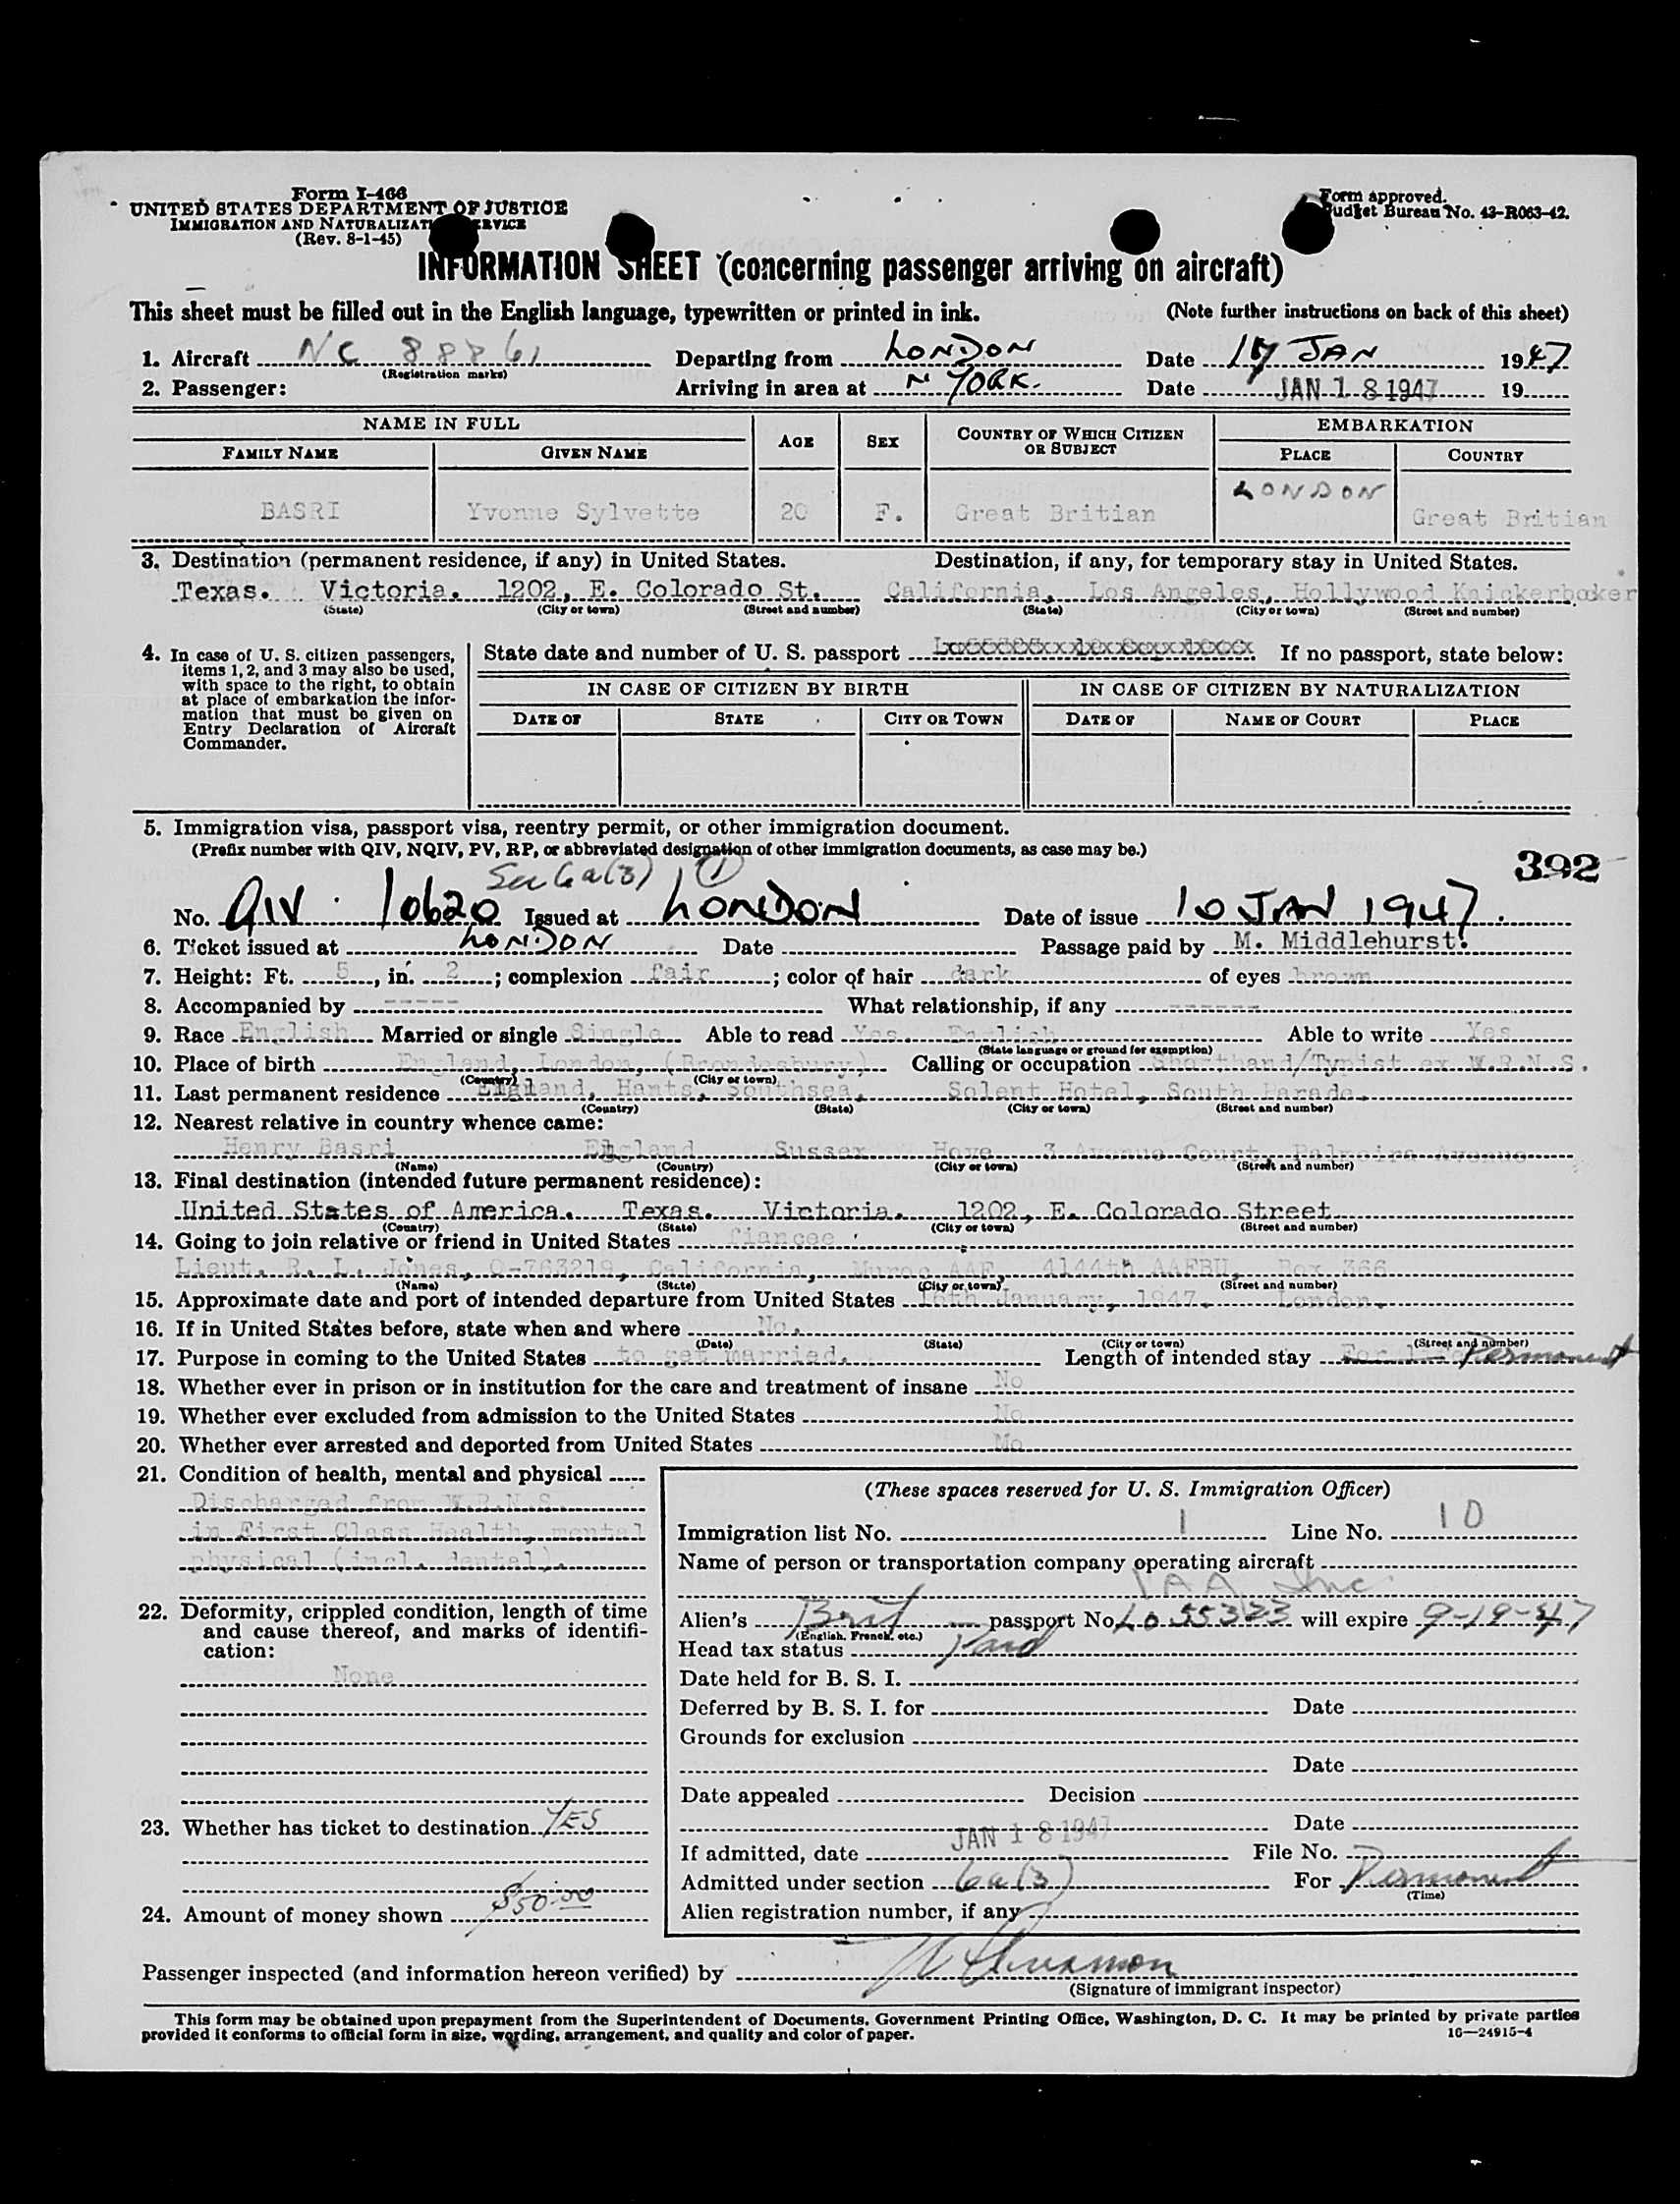 Form I-466
UNITED STATES DEPARTMENT OF JUSTICE
IMMIGRATION AND NATURALIZATION SERVICE
(Rev. 8-1-45)
Form approved.
Budget Bureau No. 43-R063-42.
INFORMATION SHEET (concerning passenger arriving on aircraft)
This sheet must be filled out in the English language, typewritten or printed in ink. (Note further instructions on back of this sheet)
1. Aircraft NC 88861 Departing from LONDON Date 17 JAN 1947
(Registration marks)
2. Passenger: Arriving in area at N YORK. Date JAN 18 1947 19
NAME IN FULL AGE SEX COUNTRY OF WHICH CITIZEN OR SUBJECT EMBARKATION
FAMILY NAME GIVEN NAME PLACE COUNTRY
BASRI Yvonne Sylvette 20 F. Great Britian LONDON Great Britian
3. Destination (permanent residence, if any) in United States. Destination, if any, for temporary stay in United States.
Texas. Victoria. 1202, E. Colorado St. California, Los Angeles, Hollywood Knickerbocker
(State) (City or town) (Street and number) (State) (City or town) (Street and number)
4. In case of U. S. citizen passengers, items 1, 2, and 3 may also be used, with space to the right, to obtain at place of embarkation the information that must be given on Entry Declaration of Aircraft Commander.
State date and number of U. S. passport If no passport, state below:
IN CASE OF CITIZEN BY BIRTH IN CASE OF CITIZEN BY NATURALIZATION
DATE OF STATE CITY OR TOWN DATE OF NAME OF COURT PLACE
5. Immigration visa, passport visa, reentry permit, or other immigration document.
(Prefix number with QIV, NQIV, PV, RP, or abbreviated designation of other immigration documents, as case may be.)
392
Sec 6a(3) 1
No. QIV 10620 Issued at LONDON Date of issue 10 JAN 1947.
6. Ticket issued at LONDON Date Passage paid by M. Middlehurst.
7. Height: Ft. 5, in. 2; complexion fair; color of hair dark of eyes brown
8. Accompanied by ----- What relationship, if any ------
9. Race English Married or single Single Able to read Yes. English Able to write Yes
(State language or ground for exemption)
10. Place of birth England, London, (Brondesbury) Calling or occupation Shorthand/Typist ex W.R.N.S.
(Country) (City or town)
11. Last permanent residence England, Hants, Southsea, Solent Hotel, South Parade.
(Country) (State) (City or town) (Street and number)
12. Nearest relative in country whence came:
Henry Basri England Sussex Hove 3 Avenue Court, Palmeira Avenue
(Name) (Country) (City or town) (Street and number)
13. Final destination (intended future permanent residence):
United States of America. Texas. Victoria. 1202, E. Colorado Street
(Country) (State) (City or town) (Street and number)
14. Going to join relative or friend in United States fiancee
Lieut. R. L. Jones, O-763219, California, Muroc AAF, 4144th AAFBU, Box 366
(Name) (State) (City or town) (Street and number)
15. Approximate date and port of intended departure from United States 16th January, 1947. London.
16. If in United States before, state when and where No.
(Date) (State) (City or town) (Street and number)
17. Purpose in coming to the United States to get married. Length of intended stay Permanent
18. Whether ever in prison or in institution for the care and treatment of insane No
19. Whether ever excluded from admission to the United States No
20. Whether ever arrested and deported from United States No
21. Condition of health, mental and physical
Discharged from W.R.N.S.
in First Class Health, mental
physical (incl. dental).
22. Deformity, crippled condition, length of time and cause thereof, and marks of identification:
None
23. Whether has ticket to destination YES
24. Amount of money shown $50.00
(These spaces reserved for U. S. Immigration Officer)
Immigration list No. 1 Line No. 10
Name of person or transportation company operating aircraft
PAA Inc
Alien's Brit passport No. LO 55323 will expire 9-19-47
(English, French, etc.)
Head tax status Paid
Date held for B. S. I.
Deferred by B. S. I. for Date
Grounds for exclusion
Date
Date appealed Decision
Date
If admitted, date JAN 18 1947 File No.
Admitted under section 6a(3) For Permanent
(Time)
Alien registration number, if any
Passenger inspected (and information hereon verified) by
(Signature of immigrant inspector)
This form may be obtained upon prepayment from the Superintendent of Documents, Government Printing Office, Washington, D. C. It may be printed by private parties
provided it conforms to official form in size, wording, arrangement, and quality and color of paper. 16—24915-4